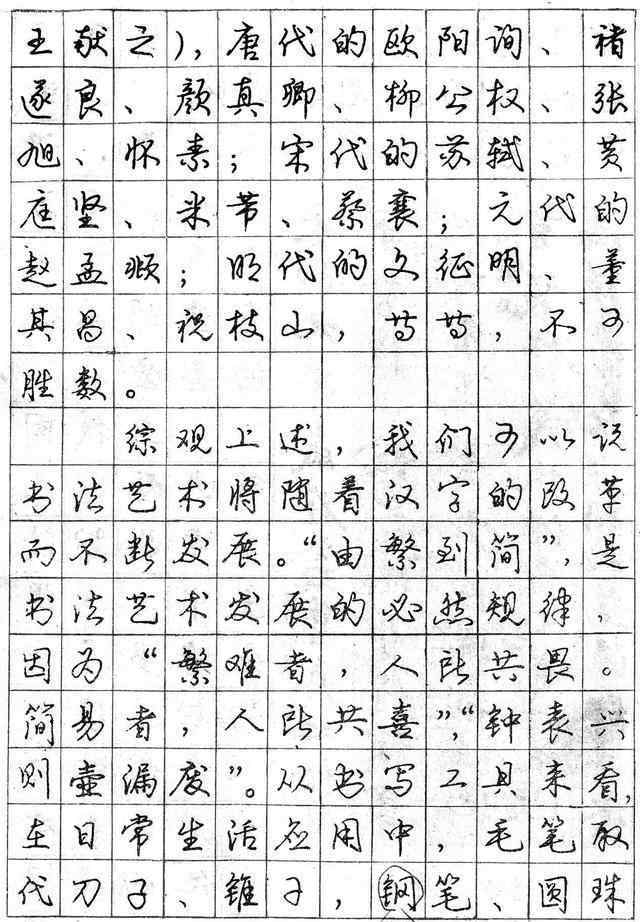 王献之），唐代的欧阳询、褚
遂良、颜真卿、柳公权、张
旭、怀素；宋代的苏轼、黄
庭坚、米芾、蔡襄；元代的
赵孟頫；明代的文征明、董
其昌、祝枝山，等等，不可
胜数。
综观上述，我们可以说
书法艺术将随着汉字的改革
而不断发展。“由繁到简”，是
书法艺术发展的必然规律，
因为“繁难者，人所共畏。
简易者，人所共喜”，“钟表兴
则壶漏废”。从书写工具来看，
在日常生活应用中，毛笔取
代刀子、锥子，钢笔、圆珠